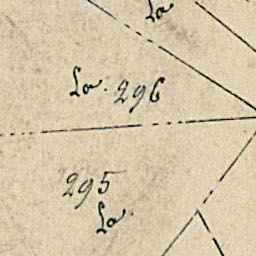 La
La. 296
295
La.